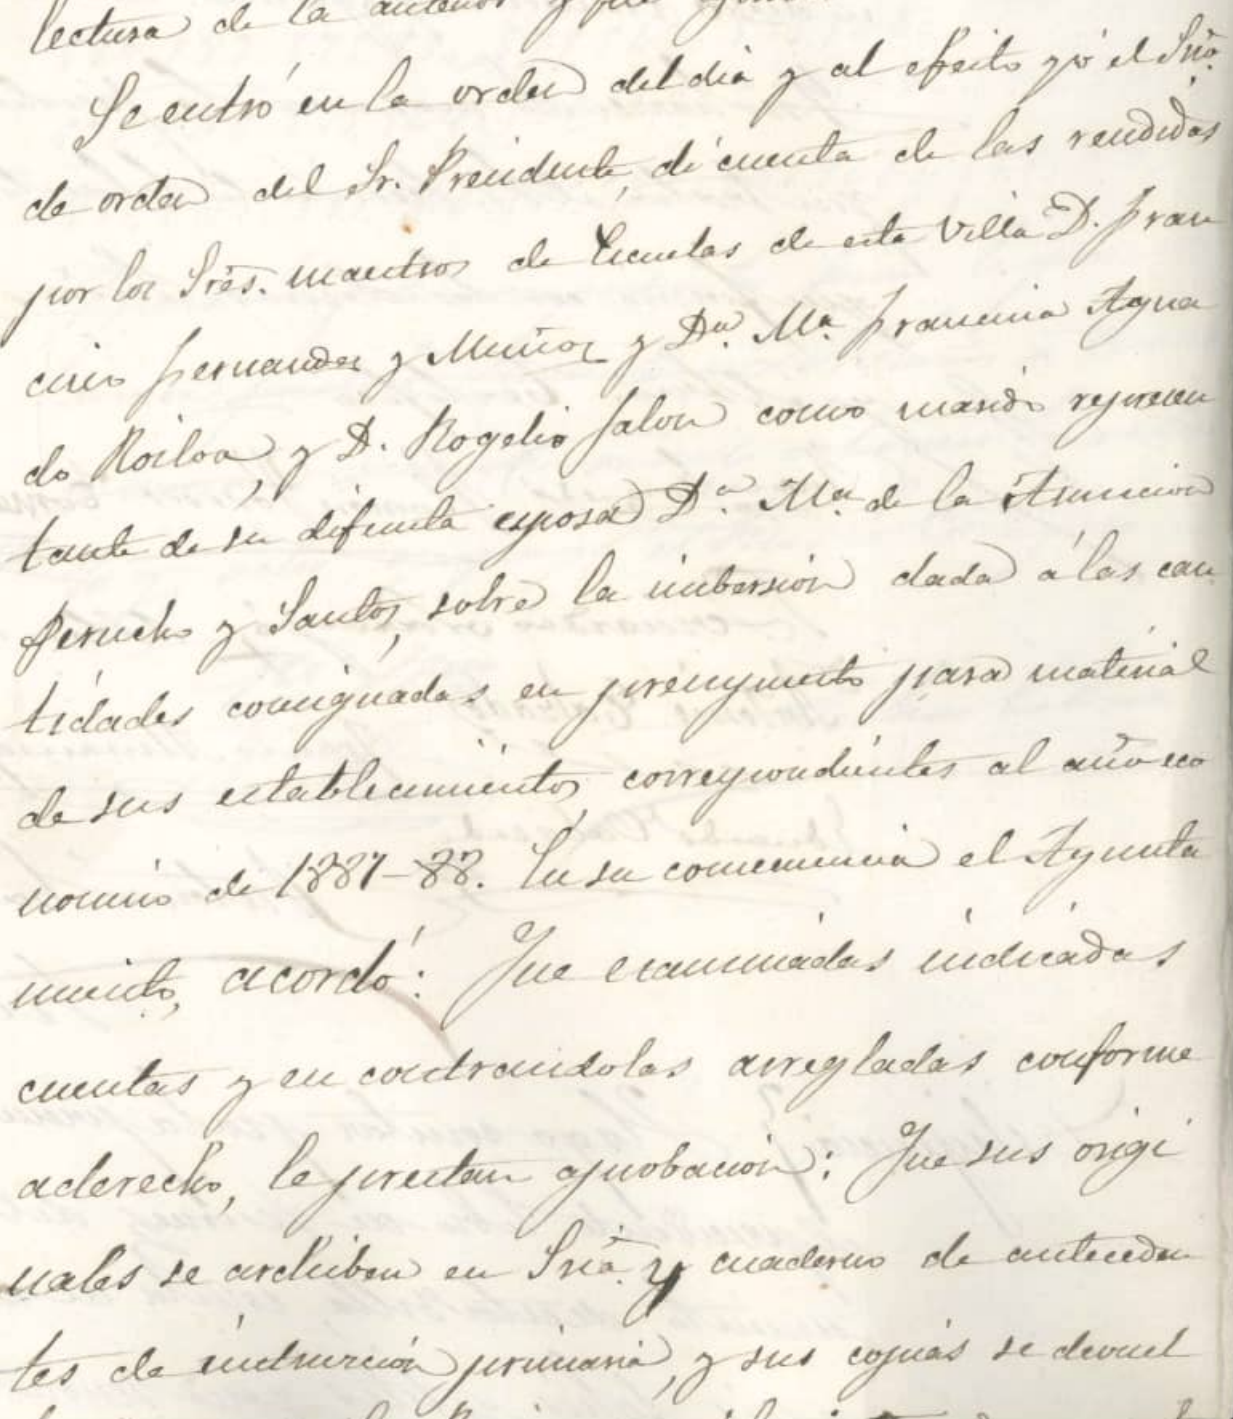 lectura de la anterior y fué
Se entró en la orden del dia y al efeito yó el Srio.
de orden del Sr. Presidente, dí cuenta de las rendidas
por los Sres. maestros de Escuelas de esta Villa D. Fran
cisco Fernandez y Muñoz y Dª. Mª. Francisca Agua
do Roiloa, y D. Rogelio Salon como marido represen
tante de su difunta esposa Dª. Mª. de la Asuncion
Perucho y Santos, sobre la imbersión dada á las can
tidades consignadas en presupuesto para material
de sus establecimientos, correspondientes al año eco
nomico de 1887-88. En su consecuencia el Ayunta
miento, acordó: Que examinadas indicadas
cuentas y en contrandolas arregladas conforme
aderecho, le prestan aprobacion: Que sus origi
nales se archiben en Sria. y cuaderno de anteceden
tes de instrucción primaria, y sus copias se devuel